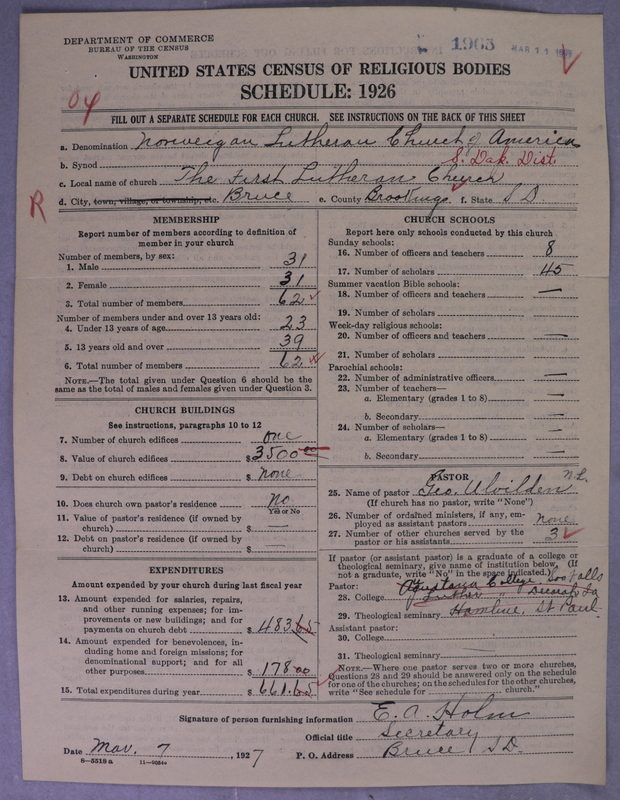 DEPARTMENT OF COMMERCE
BUREAU OF THE CENSUS
WASHINGTON
1963 MAR 11
UNITED STATES CENSUS OF RELIGIOUS BODIES
SCHEDULE: 1926
04
FILL OUT A SEPARATE SCHEDULE FOR EACH CHURCH. SEE INSTRUCTIONS ON THE BACK OF THIS SHEET
a. Denomination Norweigan Lutheran Church of America
b. Synod S. Dak. Dist.
c. Local name of church The First Lutheran Church
d. City, town, village, or township, etc. Bruce e. County Brookings f. State S D.
R
MEMBERSHIP
Report number of members according to definition of
member in your church
Number of members, by sex:
1. Male 31
2. Female 31
3. Total number of members 62
Number of members under and over 13 years old:
4. Under 13 years of age 23
5. 13 years old and over 39
6. Total number of members 62
NOTE.—The total given under Question 6 should be the
same as the total of males and females given under Question 3.
CHURCH BUILDINGS
See instructions, paragraphs 10 to 12
7. Number of church edifices one
8. Value of church edifices $ 3500 00
9. Debt on church edifices $ none
10. Does church own pastor's residence No
Yes or No
11. Value of pastor's residence (if owned by
church) $ —
12. Debt on pastor's residence (if owned by
church) $
EXPENDITURES
Amount expended by your church during last fiscal year
13. Amount expended for salaries, repairs,
and other running expenses; for im-
provements or new buildings; and for
payments on church debt $ 483.65
14. Amount expended for benevolences, in-
cluding home and foreign missions; for
denominational support; and for all
other purposes $ 178.00
15. Total expenditures during year $ 661.65
CHURCH SCHOOLS
Report here only schools conducted by this church
Sunday schools:
16. Number of officers and teachers 8
17. Number of scholars 45
Summer vacation Bible schools:
18. Number of officers and teachers —
19. Number of scholars
Week-day religious schools:
20. Number of officers and teachers —
21. Number of scholars
Parochial schools:
22. Number of administrative officers —
23. Number of teachers—
a. Elementary (grades 1 to 8) —
b. Secondary —
24. Number of scholars—
a. Elementary (grades 1 to 8) —
b. Secondary —
PASTOR
25. Name of pastor Geo. Ulvilden N.L.
(If church has no pastor, write "None")
26. Number of ordained ministers, if any, em-
ployed as assistant pastors none
27. Number of other churches served by the
pastor or his assistants 3
If pastor (or assistant pastor) is a graduate of a college or
theological seminary, give name of institution below. (If
not a graduate, write "No" in the space indicated.)
Pastor: Augustana College, Soo Falls
28. College Luther " Decorah Ia
29. Theological seminary Hamline, St Paul
Assistant pastor:
30. College
31. Theological seminary
NOTE.—Where one pastor serves two or more churches,
Questions 28 and 29 should be answered only on the schedule
for one of the churches; on the schedules for the other churches,
write "See schedule for church."
Signature of person furnishing information E. A. Holm
Official title Secretary
Date Mar. 7, 1927 P. O. Address Bruce S D.
8—5518 a 11—9054